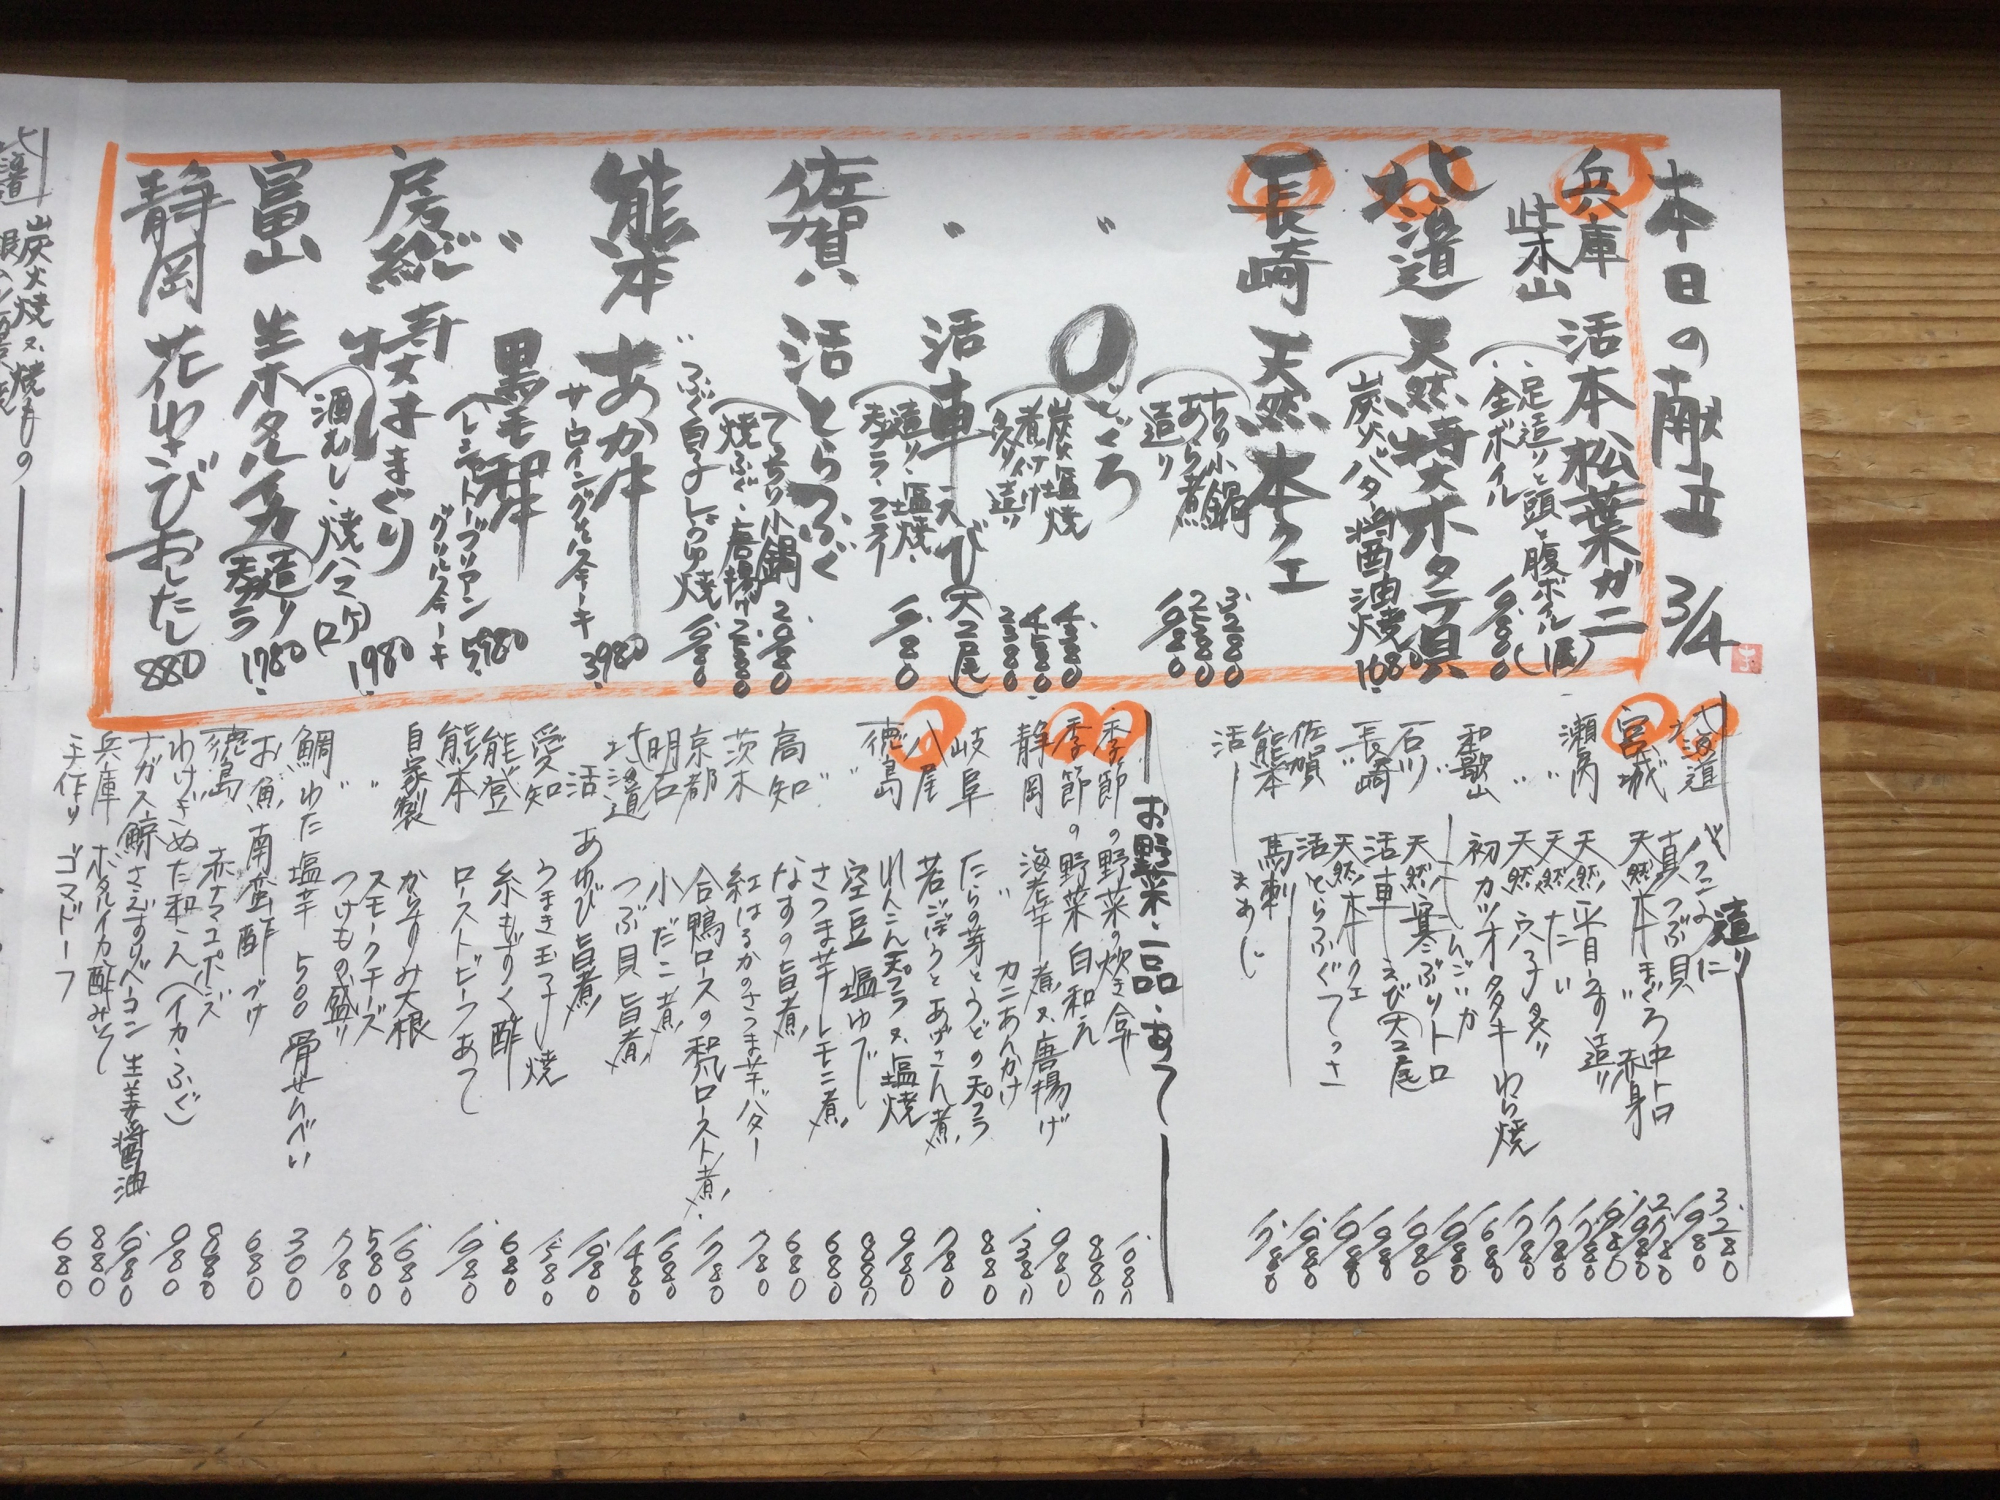 本日の献立 3/4
兵庫 柴山 活本松葉ガニ
足造りと頭と腹ボイル
全ボイル
北海道 天然特大ホタテ貝
炭火バター醤油焼 1680
長崎 天然本クエ
ちり小鍋 3280
あら煮 2580
造り 1980
〃 のどぐろ
炭火塩焼 4380
煮付け 4580
炙り造り 2380
〃 活車えび(大2尾)
造り・塩焼・
天プラ・フライ 1980
佐賀 活とらふぐ
てっちり小鍋 2080
焼ふぐ・唐揚げ 2580
〃 ふぐ白子しょうゆ焼 1980
熊本 あか牛
サーロイングリルステーキ 3980
〃 黒毛和牛
シャトーブリアン 5980
グリルステーキ
房総 特大はまぐり
酒むし・焼ハマ(2ケ) 1980
富山 生ホタルイカ 造り 天プラ 1780
静岡 花わさびおしたし 880
造り
北海道 バフンうに 3280
〃 真つぶ貝 1980
宮城 天然本まぐろ中トロ 2780
〃 赤身 1980
瀬戸内 天然平目うす造り 1780
〃 天然たい 1780
〃 天然穴子炙り 1780
和歌山 初カツオタタキ わら焼 1680
石川 天然寒ぶりトロ 1980
長崎 活車えび(大2尾) 1980
〃 天然本クエ 1980
佐賀 活とらふぐてっさ 1980
熊本 馬刺 1780
活 まあじ
お野菜・一品・あて
季節の野菜の炊き合せ 1080
季節の野菜 白和え 880
静岡 海老芋 煮又唐揚げ 980
〃 カニあんかけ 1380
岐阜 たらの芽とうどの天プラ 880
八尾 若ごぼうとあげさん煮 780
徳島 れんこん天プラ又塩焼 980
〃 空豆 塩ゆで 880
〃 さつま芋レモン煮 680
高知 なすの旨煮 680
茨木 紅はるかのさつま芋バター 780
京都 合鴨ロースの和風ロースト煮 1780
明石 小だこ煮 1680
北海道 つぶ貝旨煮 1480
活 あわび旨煮 1980
愛知 うまき玉子焼 1580
能登 糸もずく酢 680
熊本 ローストビーフあて 1980
自家製 からすみ大根 1680
〃 スモークチーズ 580
〃 つけもの盛り 780
鯛わた塩辛 500 骨せんべい 300
お魚 南蛮酢づけ 680
徳島 赤ナマコポン酢 880
わけぎぬた和え(イカ・ふぐ) 980
ナガス鯨さえずりベーコン 生姜醤油 1680
兵庫 ホタルイカ酢みそ 880
手作り ゴマドーフ 680
炭火焼又焼もの